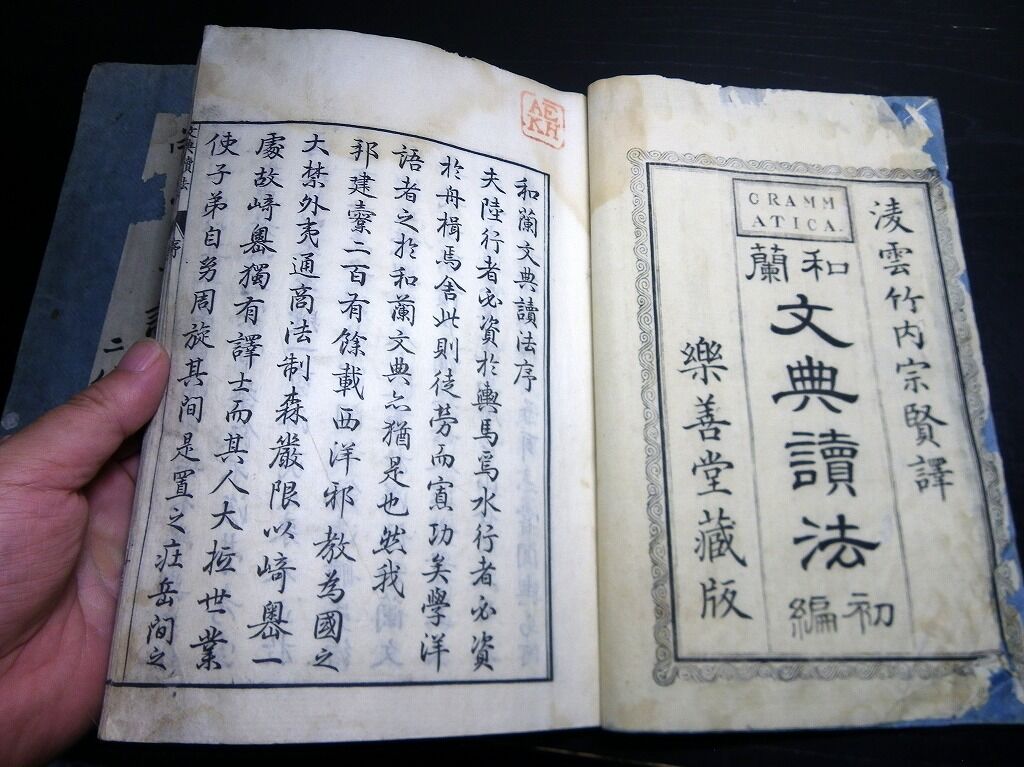 淩雲竹内宗賢譯
GRAMM
ATICA.
和蘭
文典讀法
初編
樂善堂藏版
AE
KH
和蘭文典讀法序
夫陸行者必資於輿馬焉水行者必資
於舟楫焉舍此則徒勞而寡功矣學洋
語者之於和蘭文典亦猶是也然我
邦建櫜二百有餘載西洋邪教為國之
大禁外夷通商法制森嚴限以崎嶴一
處故崎嶴獨有譯士而其人大抵世業
使子弟自幼周旋其間是置之莊岳間之
文典讀法
序